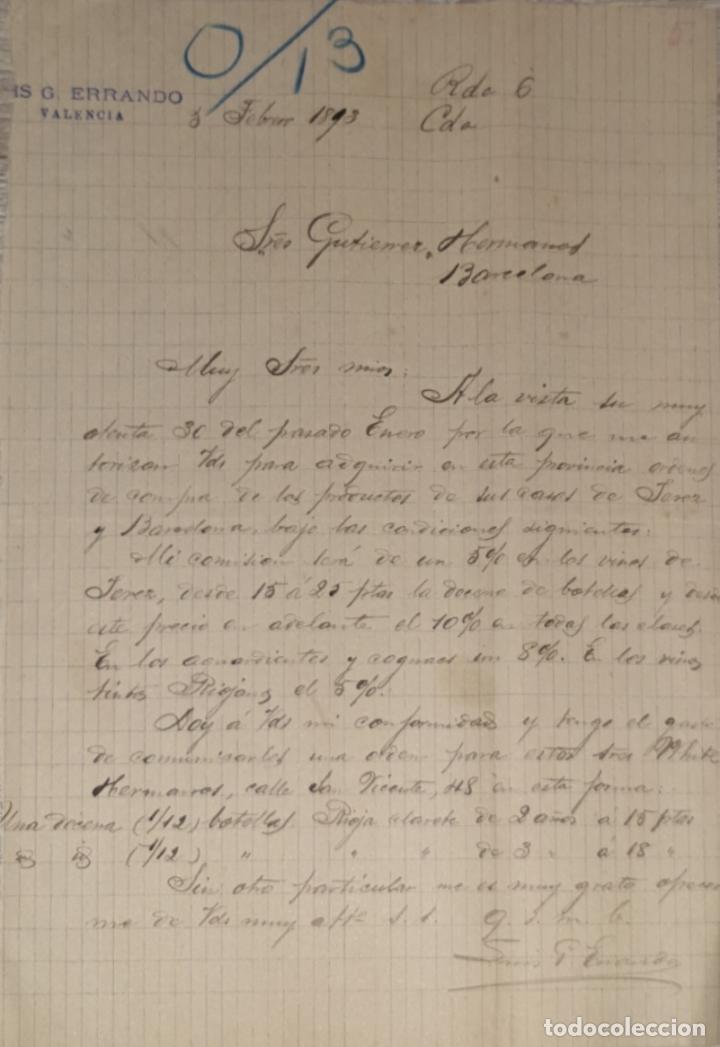 O/13
5.
IS G. ERRANDO
VALENCIA
3 Febrero 1893
Rda 6
Cda
Sres Gutierrez Hermanos
Barcelona
Muy Sres mios:
A la vista su muy
atenta 30 del pasado Enero por la que me au
torizan Vds para adquirir en esta provincia ordenes
de compra de los productos de sus casas de Jerez
y Barcelona, bajo las condiciones siguientes:
Mi comision será de un 5% en los vinos de
Jerez, desde 15 á 25 ptas la docena de botellas y desde
este precio en adelante el 10% en todas las clases.
En los aguardientes y cognacs un 8%. En los vinos
tintos Riojanos el 5%.
Doy á Vds mi conformidad y tengo el gusto
de comunicarles una orden para estos Sres White
Hermanos, calle San Vicente, 118 en esta forma:
Una docena (1/12) botellas Rioja clarete de 2 años á 15 ptas
(1/12) " " " de 3 " á 18 "
Sin otro particular me es muy grato ofrecer
me de Vds muy atto s. s. q. s. m. b.
Luis G. Errando
todocoleccion
todocoleccion.net